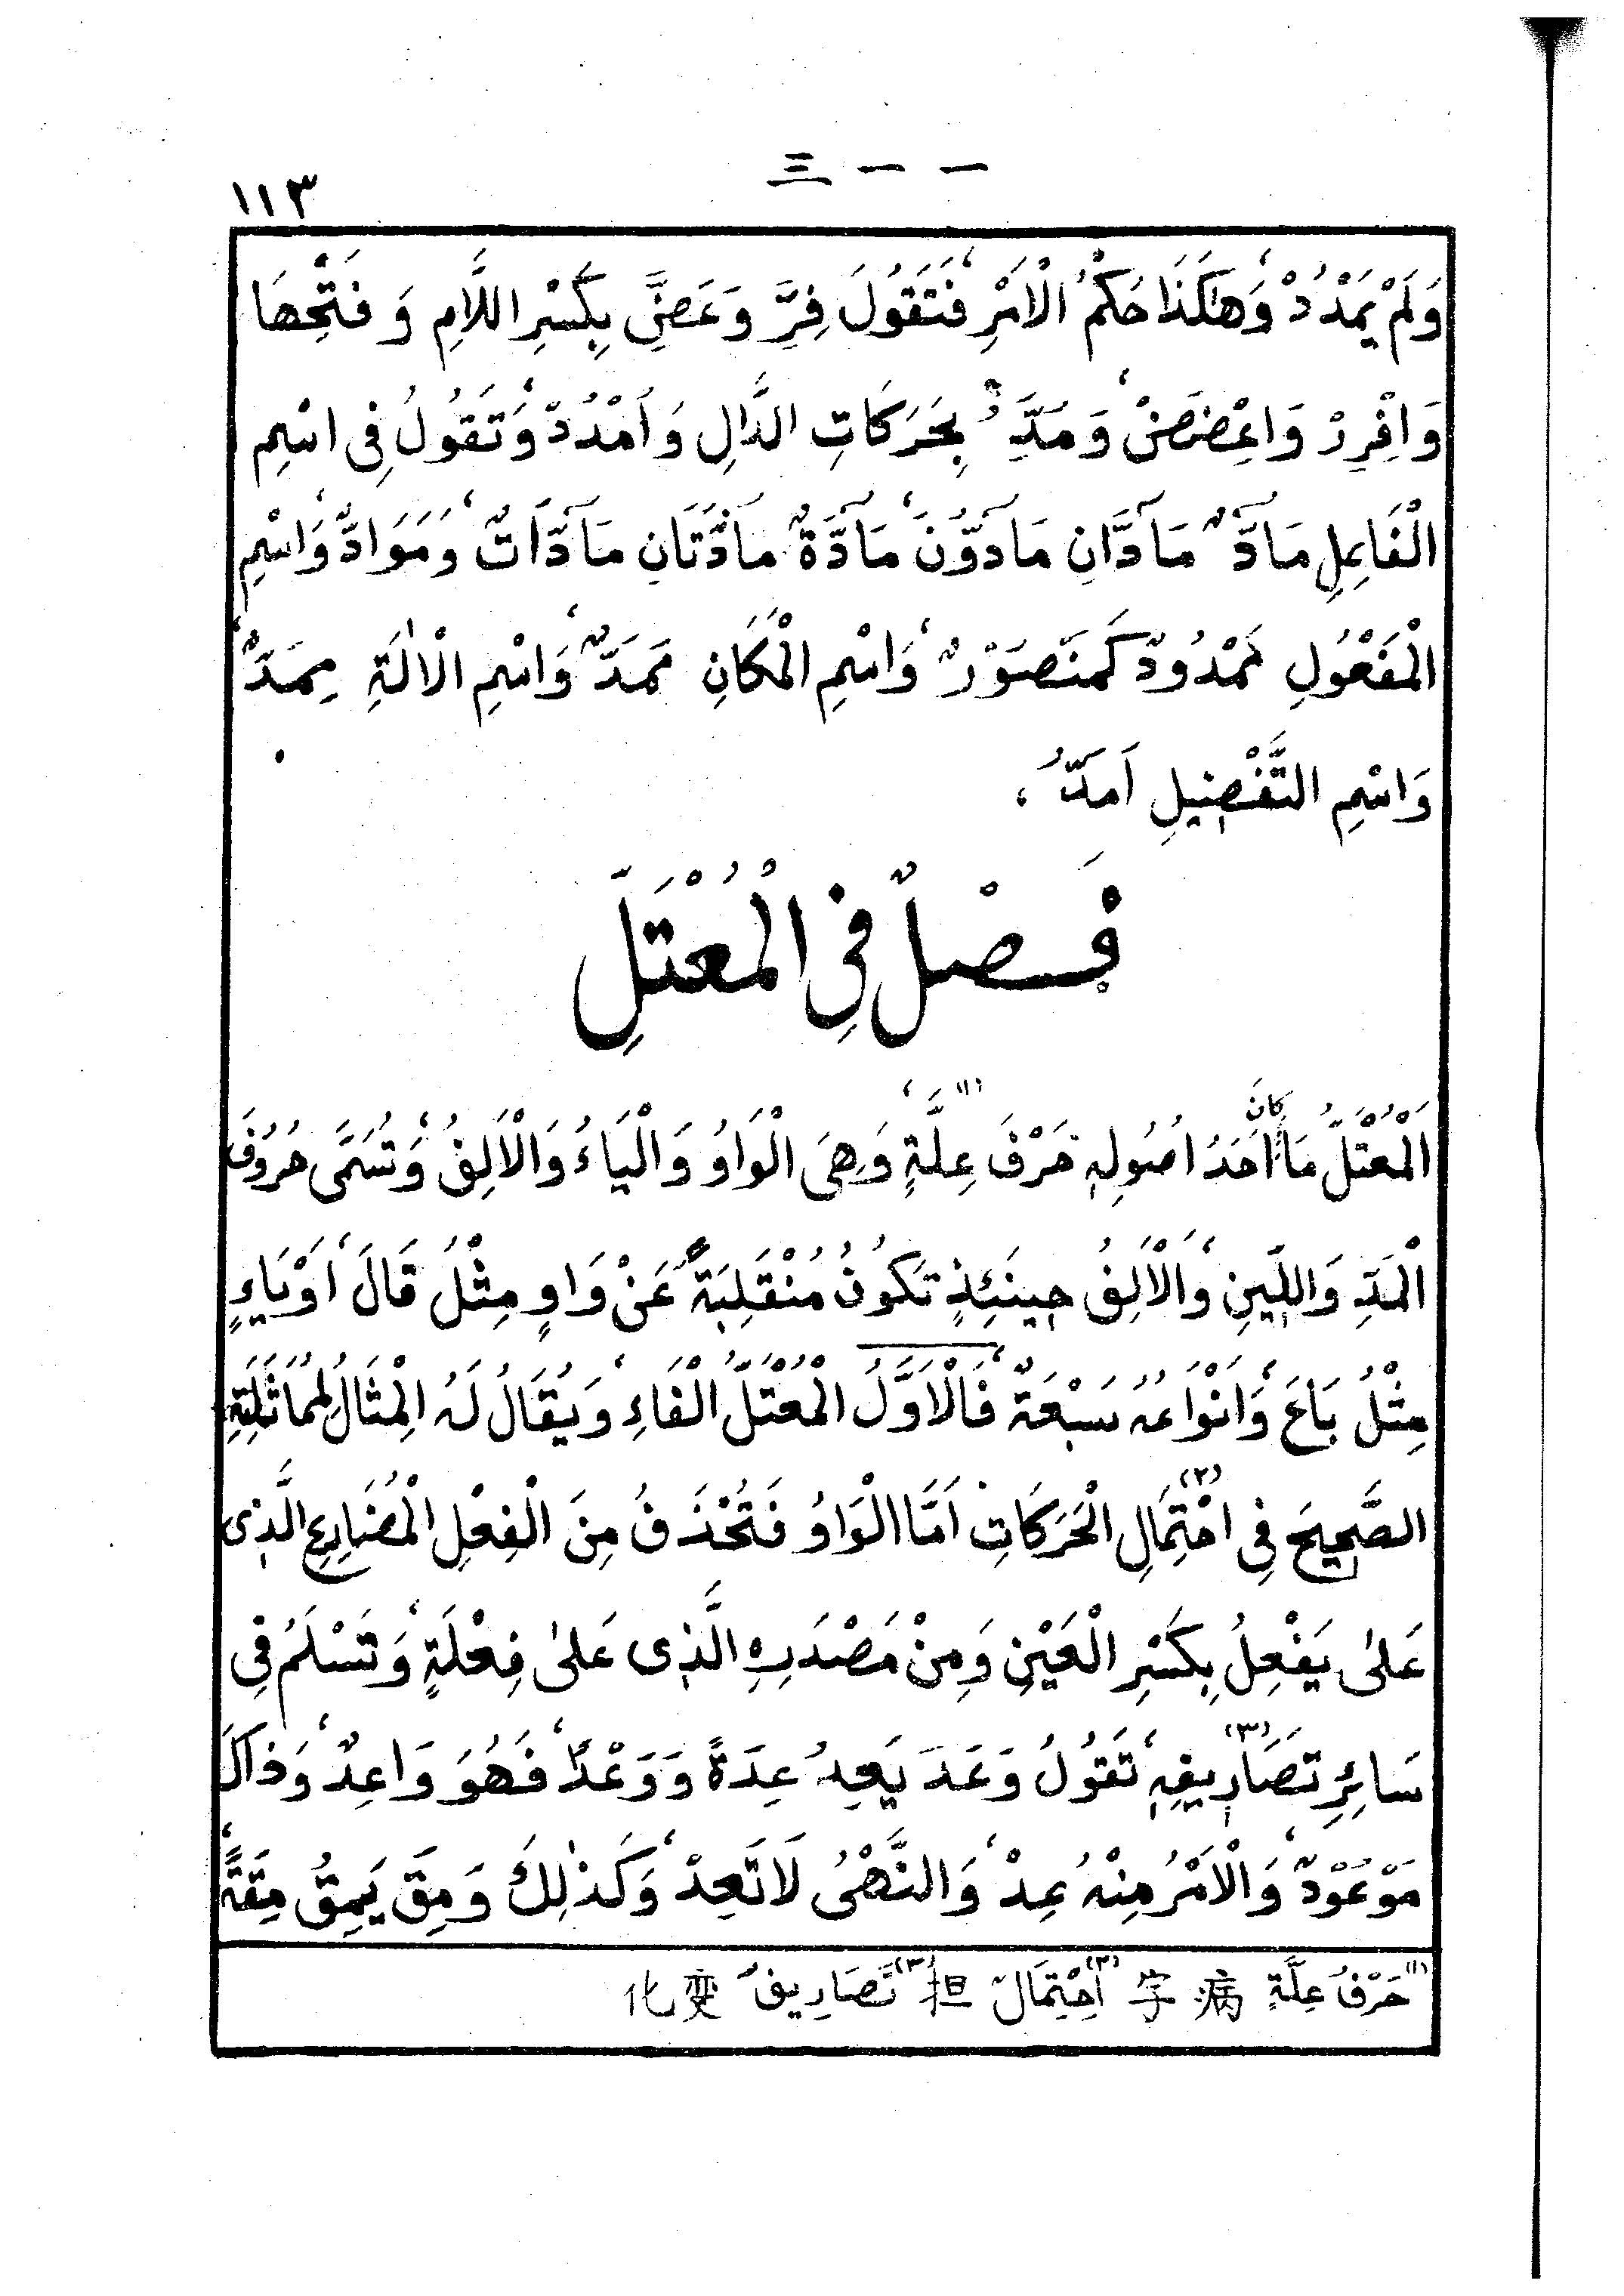 一一三
١١٣
وَلَمْ يَمْدُدْ، وَهٰكَذَا حُكْمُ الْاَمْرِ، فَتَقُولُ فِرَِّ وَعَضَِّ بِكَسْرِ اللَّامِ وَفَتْحِهَا
وَاِفْرِرْ وَاِعْضَضْ، وَمُدَُِّ بِحَرَكَاتِ الدَّالِ وَاُمْدُدْ، وَتَقُولُ فِى اسْمِ
الْفَاعِلِ مَآدٌّ مَآدَّانِ مَآدُّوْنَ، مَآدَّةٌ مَآدَّتَانِ مَآدَّاتٌ، وَمَوَادُّ، وَاسْمِ
الْمَفْعُولِ مَمْدُوْدٌ كَمَنْصُوْرٌ، وَاسْمِ الْمَكَانِ مَمَدٌّ، وَاسْمِ الْاٰلَةِ مِمَدٌّ،
وَاسْمِ التَّفْضِيلِ اَمَدُّ،
فَصْلٌ فِى الْمُعْتَلِّ
اَلْمُعْتَلُّ مَا كَانَ اَحَدُ اُصُولِهٖ حَرْفَ عِلَّةٍ(١)، وَهِىَ الْوَاوُ وَالْيَاءُ وَالْاَلِفُ، وَتُسَمَّى حُرُوفَ
الْمَدِّ وَاللِّيْنِ، وَالْاَلِفُ حِينَئِذٍ تَكُونُ مُنْقَلِبَةً عَنْ وَاوٍ مِثْلُ قَالَ، اَوْ يَاءٍ
مِثْلُ بَاعَ، وَاَنْوَاعُهُ سَبْعَةٌ، فَالْاَوَّلُ الْمُعْتَلُّ الْفَاءِ، وَيُقَالُ لَهُ الْمِثَالُ لِمُمَاثَلَتِهِ
الصَّحِيحَ فِى احْتِمَالِ(٢) الْحَرَكَاتِ، اَمَّا الْوَاوُ فَتُحْذَفُ مِنَ الْفِعْلِ الْمُضَارِعِ الَّذِى
عَلٰى يَفْعِلُ بِكَسْرِ الْعَيْنِ وَمِنْ مَصْدَرِهِ الَّذِى عَلٰى فِعْلَةٍ، وَتَسْلَمُ فِى
سَائِرِ تَصَارِيفِهٖ(٣)، تَقُولُ وَعَدَ يَعِدُ عِدَةً وَوَعْدًا، فَهُوَ وَاعِدٌ، وَذَاكَ
مَوْعُوْدٌ، وَالْاَمْرُ مِنْهُ عِدْ، وَالنَّهْىُ لَا تَعِدْ، وَكَذٰلِكَ وَمِقَ يَمِقُ مِقَةً،
(١) حَرْفُ عِلَّةٍ 病字 (٢) اِحْتِمَالٌ 担 (٣) تَصَارِيفُ 变化